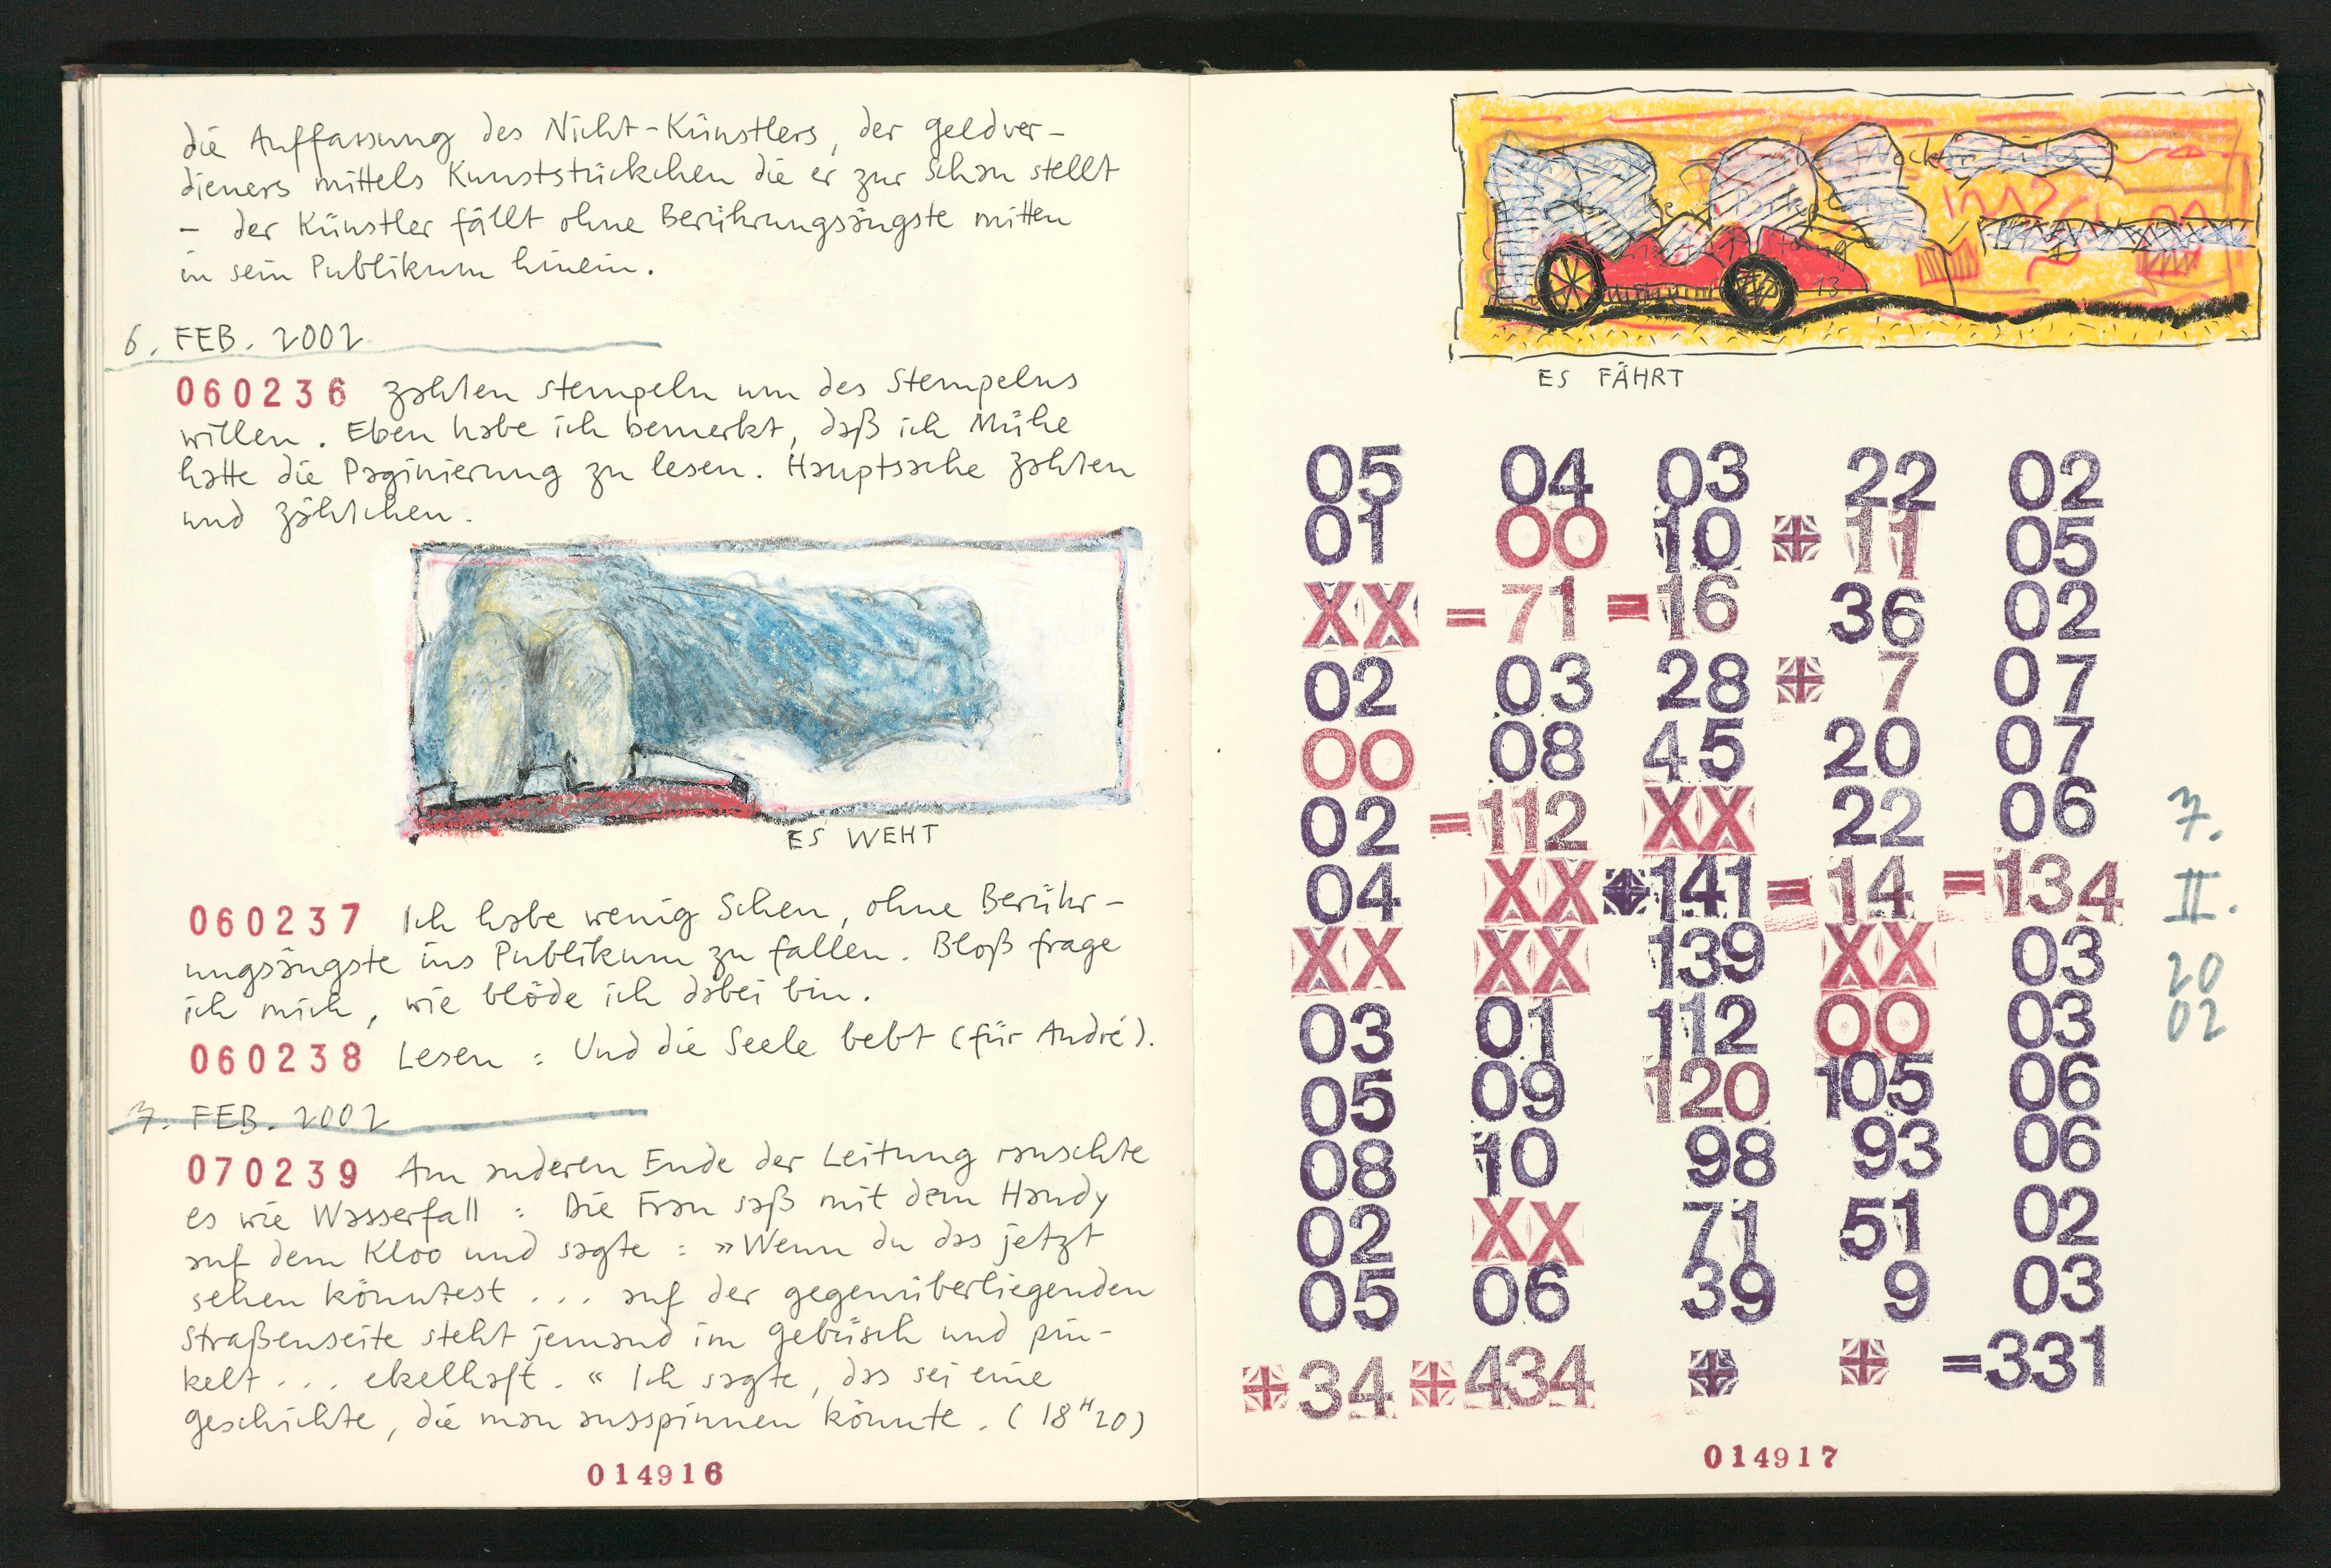 die Auffassung des Nicht-Künstlers, der geldver-
dieners mittels Kunststückchen die er zur Schau stellt
– der Künstler fällt ohne Berührungsängste mitten
in sein Publikum hinein.
6. FEB. 2002
060236 Zahlen stempeln um des Stempelns
willen. Eben habe ich bemerkt, daß ich Mühe
hatte die Paginierung zu lesen. Hauptsache Zahlen
und Zählchen.
ES WEHT
060237 Ich habe wenig Scheu, ohne Berühr-
ungsängste ins Publikum zu fallen. Bloß frage
ich mich, wie blöde ich dabei bin.
060238 Lesen: Und die Seele bebt (für André).
7. FEB. 2002
070239 Am anderen Ende der Leitung rauschte
es wie Wasserfall: Die Frau saß mit dem Handy
auf dem Kloo und sagte: »Wenn du das jetzt
sehen könntest ... auf der gegenüberliegenden
Straßenseite steht jemand im Gebüsch und pin-
kelt ... ekelhaft.« Ich sagte, das sei eine
Geschichte, die man ausspinnen könnte. (18H20)
014916
ES FÄHRT
05 04 03 22 02
01 00 10 + 11 05
XX = 71 = 16 36 02
02 03 28 + 7 07
00 08 45 20 07
02 = 112 XX 22 06
04 XX + 141 = 14 = 134
XX XX 139 XX 03
03 01 112 00 03
05 09 120 105 06
08 10 98 93 06
02 XX 71 51 02
05 06 39 9 03
+ 34 + 434 + + = 331
7.
II.
20
02
014917